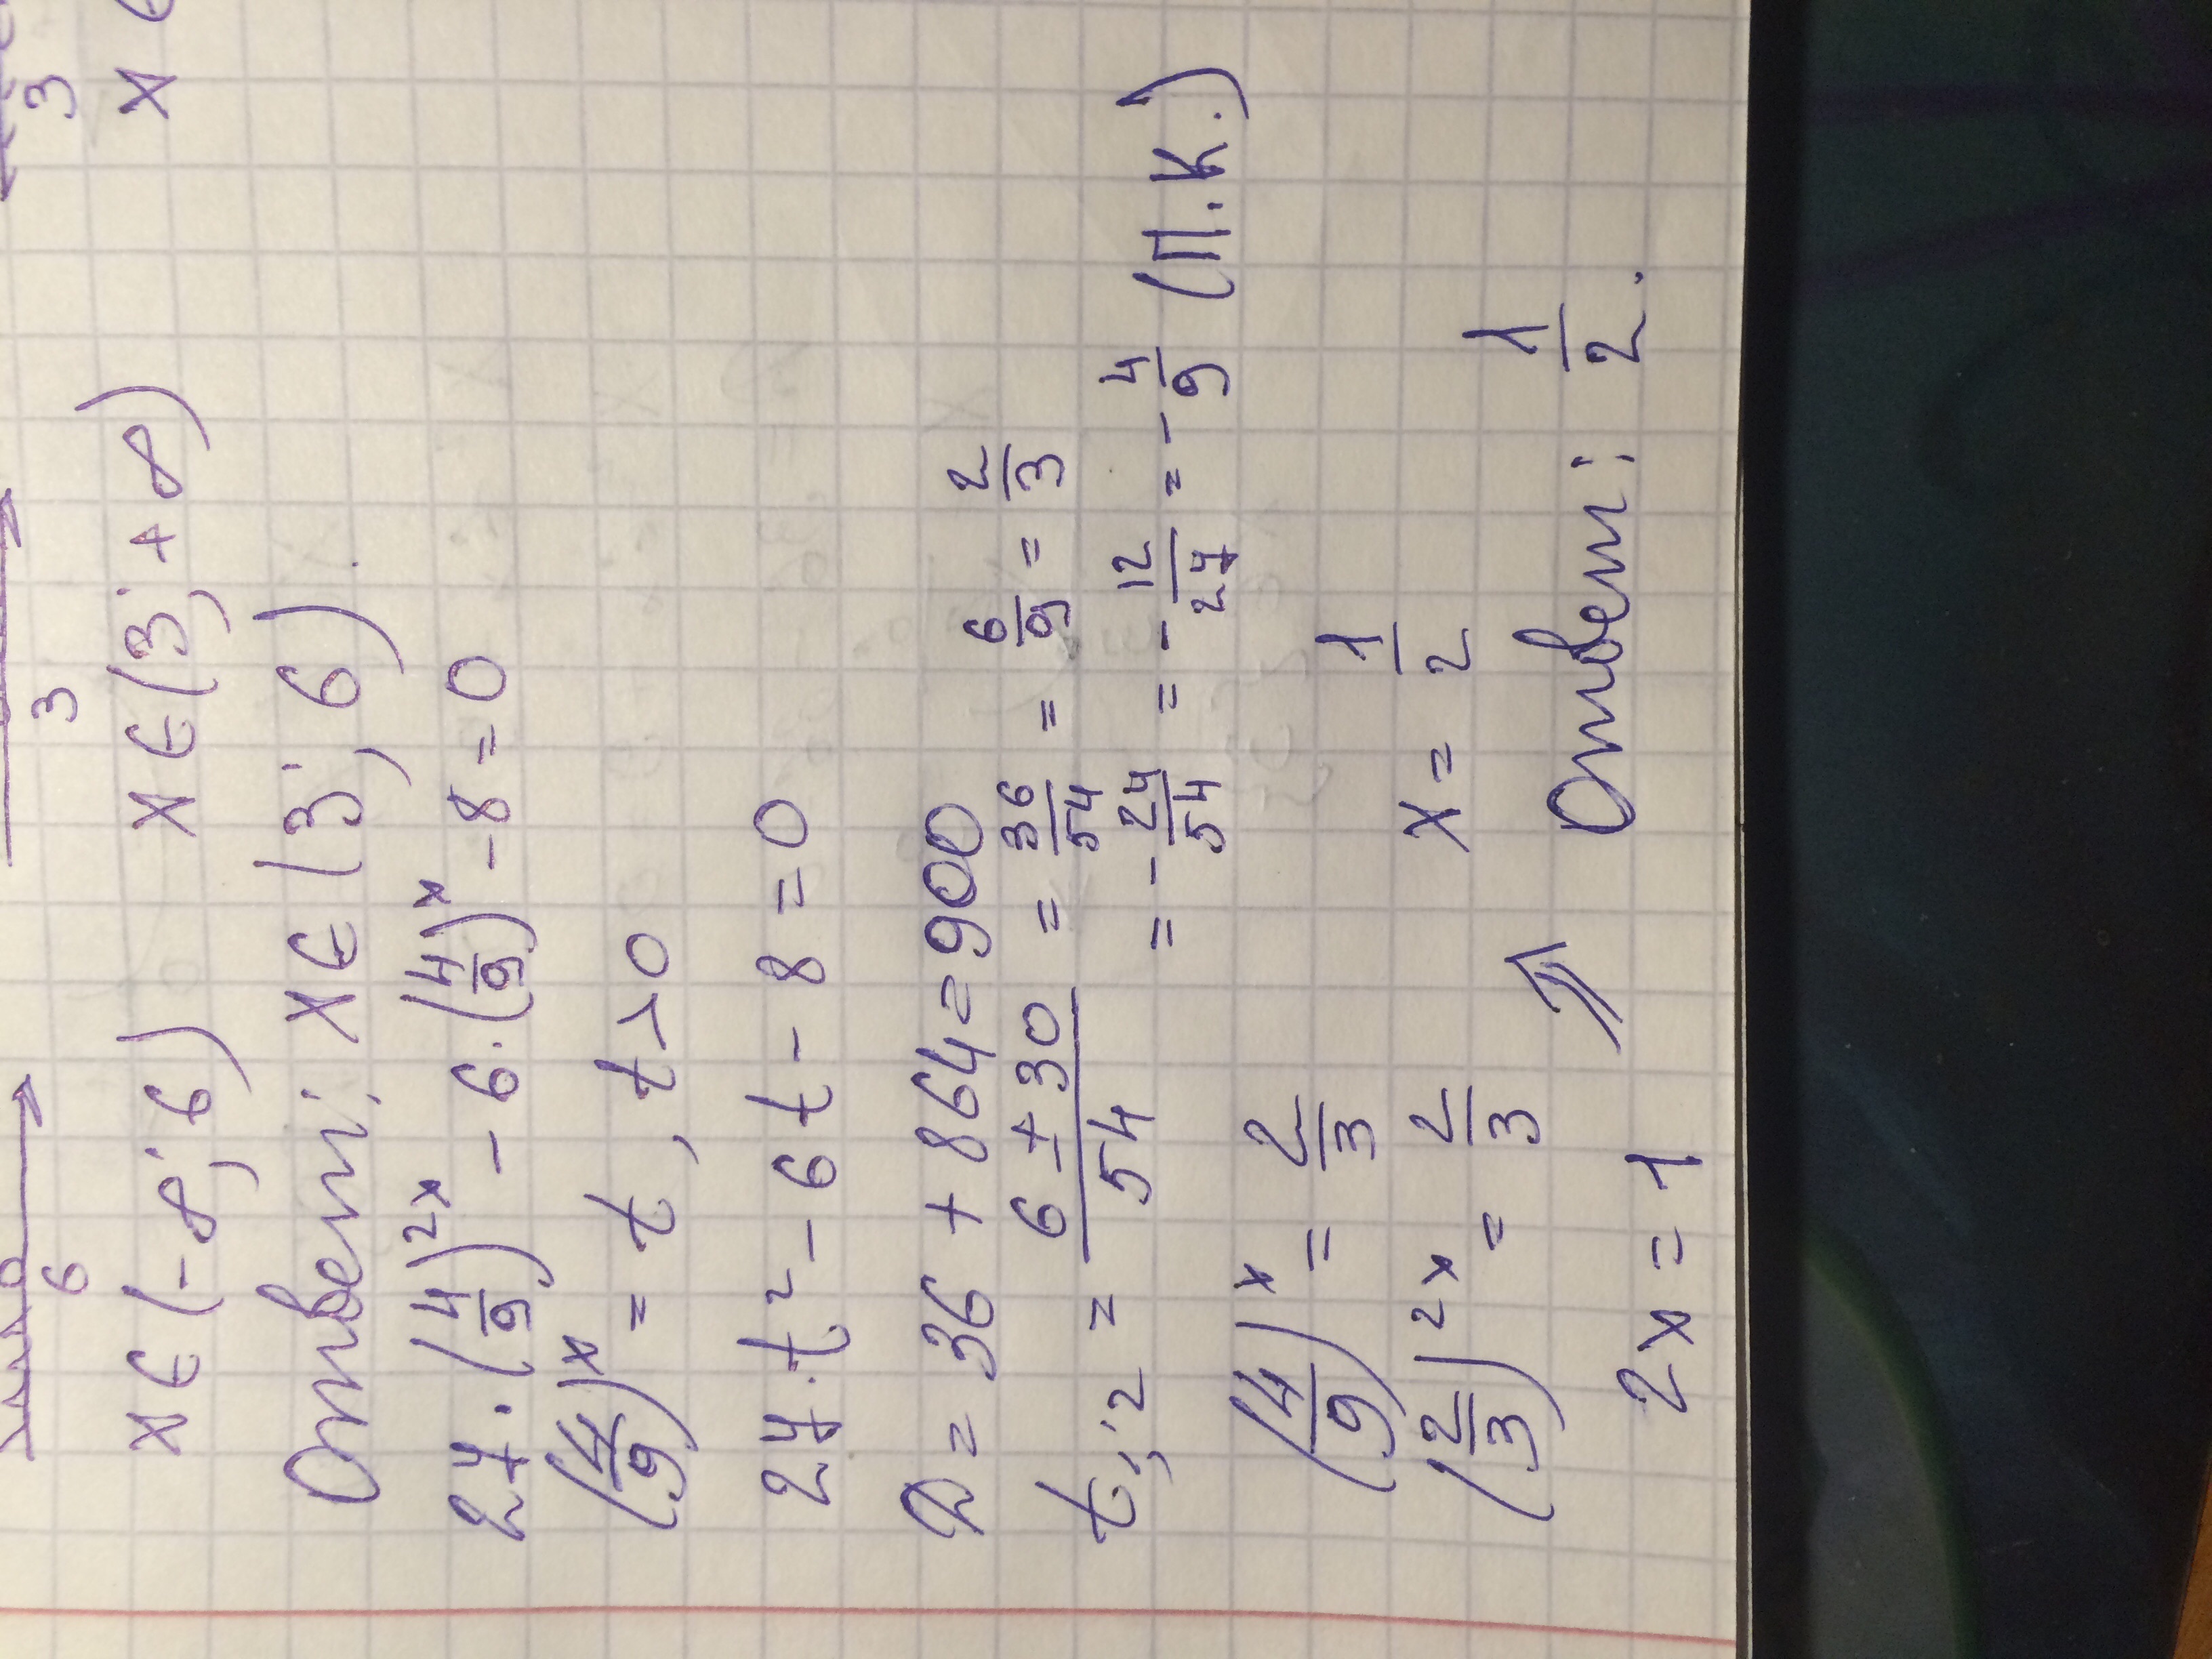 6 3 3
x∈(-∞; 6) x∈(3; +∞) x
Ответ: x∈(3; 6).
27·(4/9)^2x - 6·(4/9)^x - 8 = 0
(4/9)^x = t, t>0
27·t² - 6t - 8 = 0
D = 36 + 864 = 900
t₁;₂ = (6 ± 30)/54 = 36/54 = 6/9 = 2/3
= -24/54 = -12/27 = -4/9 (П.К.)
(4/9)^x = 2/3
(2/3)^2x = 2/3 x = 1/2
2x = 1 ⇒ Ответ: 1/2.